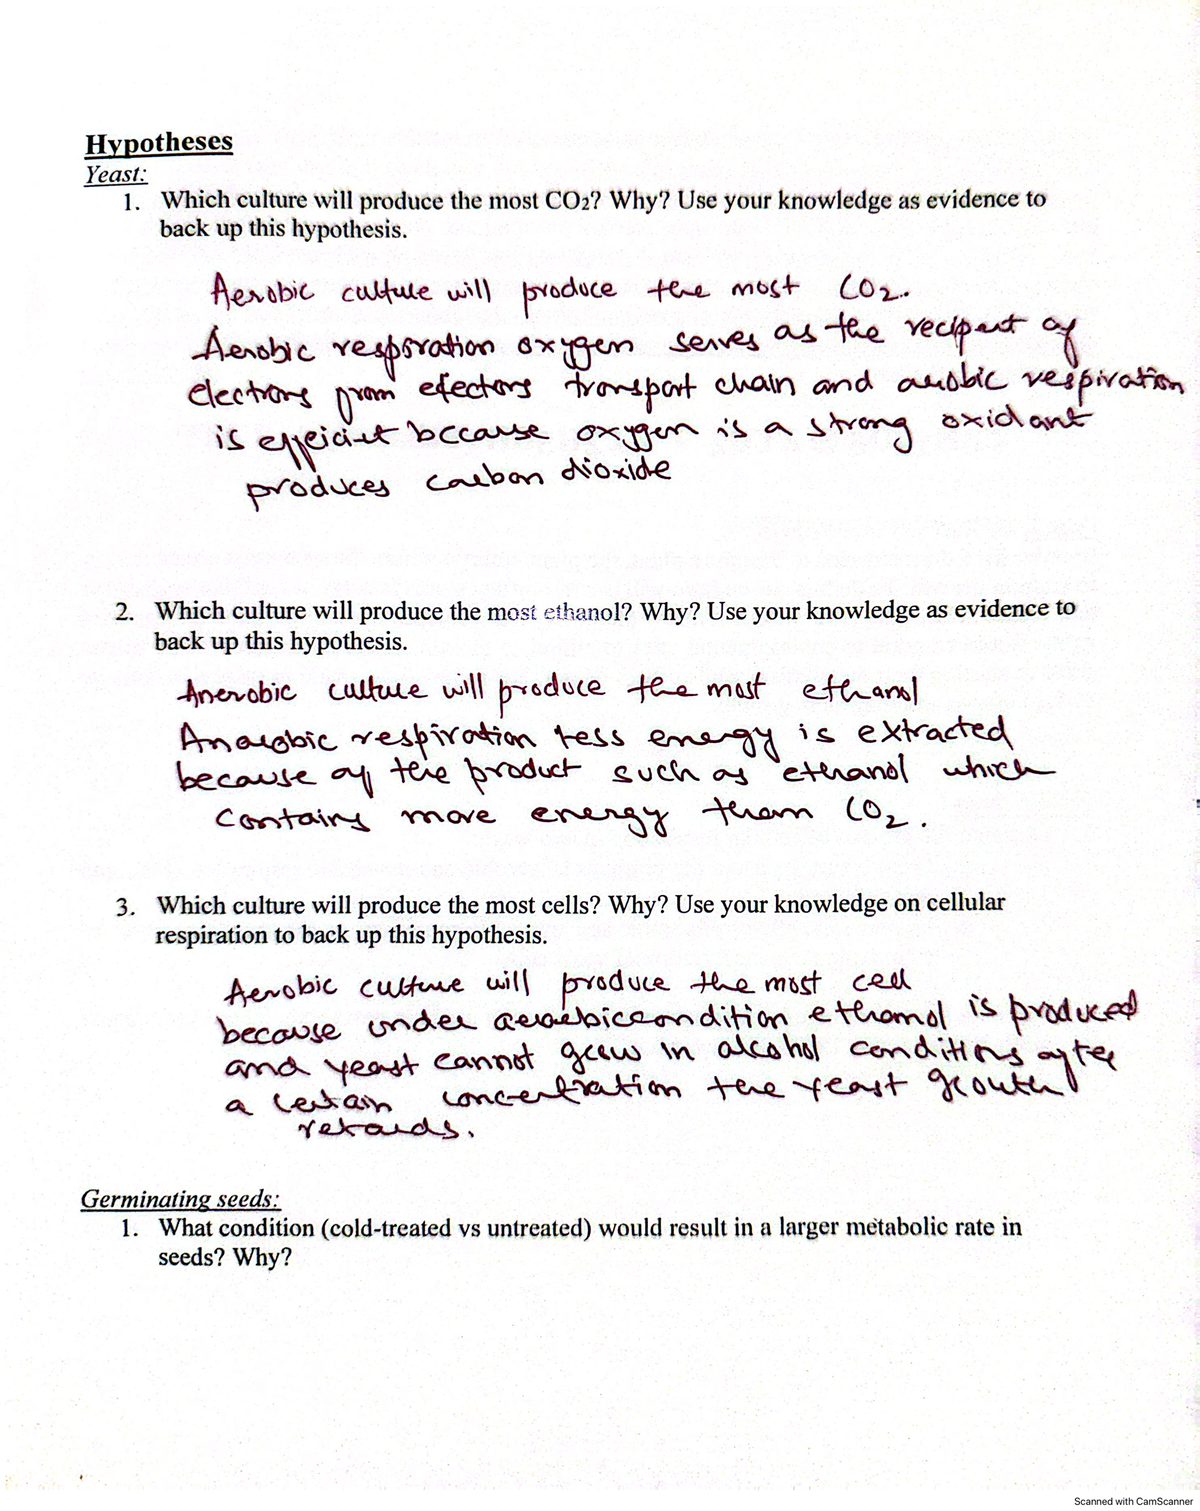 Hypotheses
Yeast:
1. Which culture will produce the most CO2? Why? Use your knowledge as evidence to
back up this hypothesis.
Aerobic culture will produce the most CO2.
Aerobic respiration oxygen serves as the recipent of
electrons from efectors transport chain and aerobic respiration
is effeiciet because oxygen is a strong oxidant
produces carbon dioxide
2. Which culture will produce the most ethanol? Why? Use your knowledge as evidence to
back up this hypothesis.
Anerobic culture will produce the most ethanol
Anaerobic respiration less energy is extracted
because of the product such as ethanol which
contains more energy than CO2.
3. Which culture will produce the most cells? Why? Use your knowledge on cellular
respiration to back up this hypothesis.
Aerobic culture will produce the most cell
because under condition ethanol is produced
and yeast cannot grow in alcohol conditions after
a certain concentration the yeast growth
retards.
Germinating seeds:
1. What condition (cold-treated vs untreated) would result in a larger metabolic rate in
seeds? Why?
Scanned with CamScanner